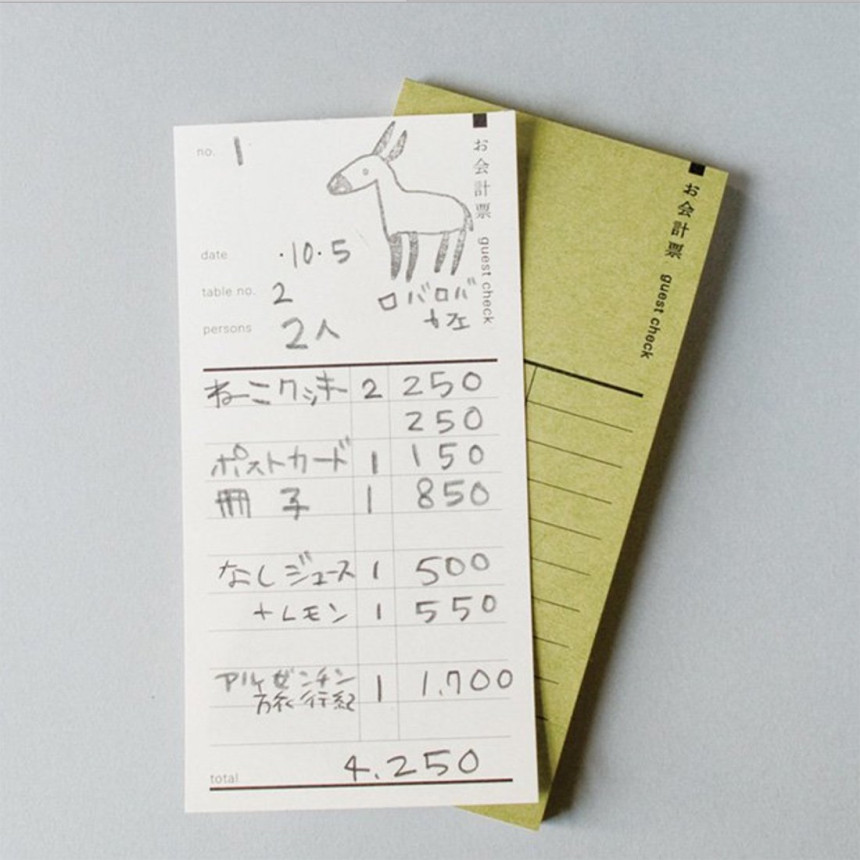 no. 1
お会計票 guest check
date ・10・5
table no. 2
persons 2人
ロバロバ
カフェ
ねーこクッキー 2 250
250
ポストカード 1 150
冊子 1 850
なしジュース 1 500
+レモン 1 550
アルゼンチン 1 1,700
旅行紀
total 4.250
お会計票 guest check